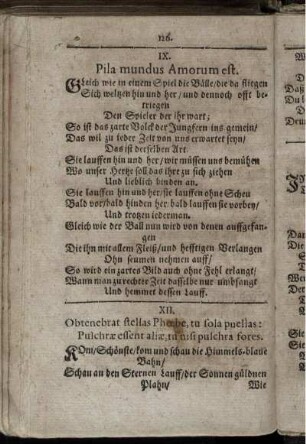 116.
IX.
Pila mundus Amorum est.
GLeich wie in einem Spiel die Bälle/die da fliegen
Sich weltzen hin und her/ und dennoch offt be-
triegen
Den Spieler der ihr wart;
So ist das zarte Volck der Jungfern ins gemein/
Das wil zu jeder Zeit von uns erwartet seyn/
Das ist derselben Art.
Sie lauffen hin und her/ wir müssen uns bemühen
Wo unser Hertze soll das ihre zu sich ziehen
Und lieblich binden an.
Sie lauffen hin und her/sie lauffen ohne Scheu
Bald vor/bald hinden her/bald lauffen sie vorbey/
Und trotzen iederman.
Gleich wie der Ball nun wird von denen auffgefan-
gen
Die ihn mit allem Fleiß/und hefftigen Verlangen
Ohn seumen nehmen auff/
So wird ein zartes Bild auch ohne Fehl erlangt/
Wann man zu rechter Zeit dasselbe nur umbfangt
Und hemmet dessen Lauff.
XII.
Obtenebrat stellas Phœbe, tu sola puellas:
Pulchræ essent aliæ, tu nisi pulchra fores.
KOm/Schönste/kom und schau die Himmels-blaue
Bahn/
Schau an den Sternen Lauff/der Sonnen güldnen
Plahn/
Wie